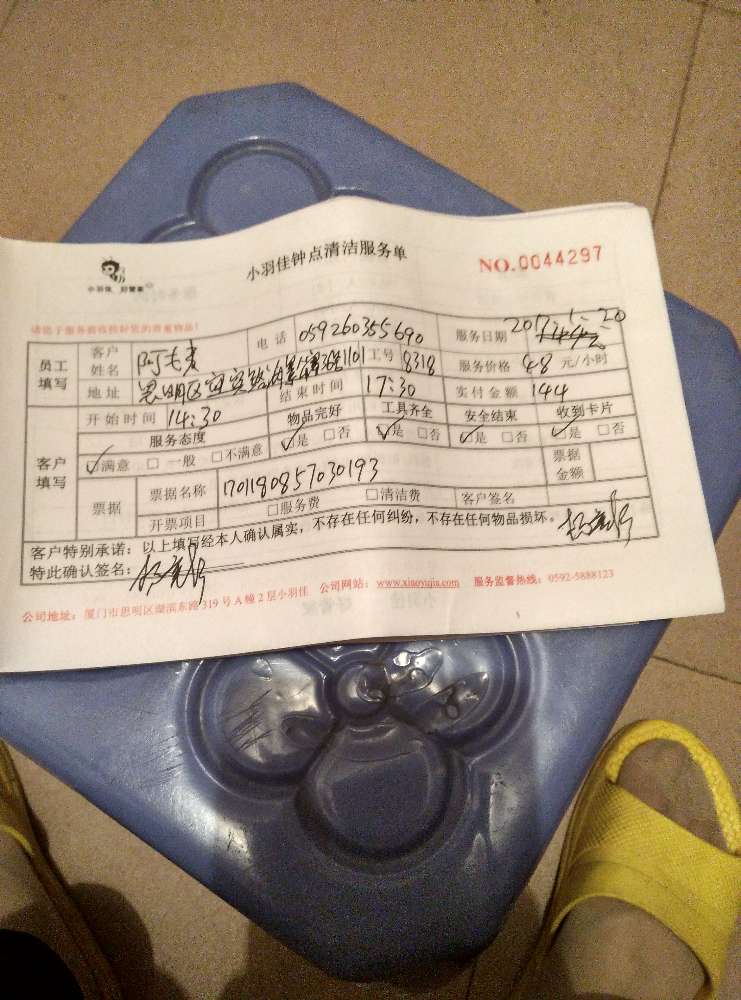 小羽佳 好管家
小羽佳钟点清洁服务单
NO.0044297
请您于服务前收检好您的贵重物品!
员工填写
客户姓名
电话 059260355690
服务日期 2017.1.20
地址 思明区
1101
工号 8318
服务价格 48 元/小时
客户填写
开始时间 14:30
结束时间 17:30
实付金额 144
服务态度
物品完好
工具齐全
安全结束
收到卡片
☑满意 □一般 □不满意
☑是 □否
☑是 □否
☑是 □否
☑是 □否
票据
票据名称 1701180857030193
票据金额
开票项目 □服务费 □清洁费
客户签名
客户特别承诺:以上填写经本人确认属实,不存在任何纠纷,不存在任何物品损坏。
特此确认签名:
公司地址:厦门市思明区湖滨东路319号A幢2层小羽佳 公司网站:www.xiaoyujia.com 服务监督热线:0592-5888123